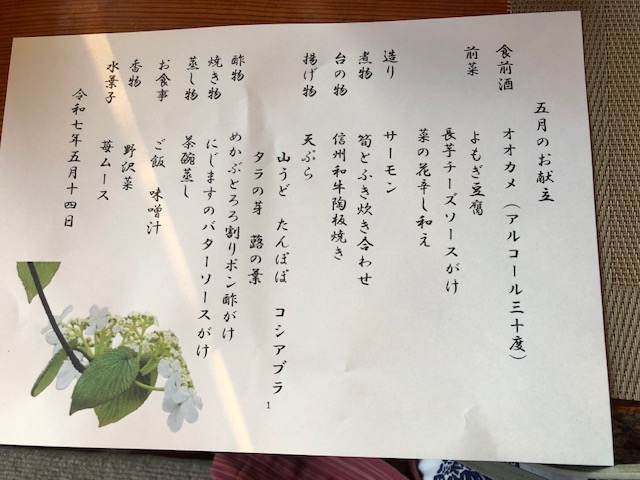 五月のお献立
食前酒　オオカメ　（アルコール三十度）
前菜　よもぎ豆腐
長芋チーズソースがけ
菜の花辛し和え
造り　サーモン
煮物　筍とふき炊き合わせ
台の物　信州和牛陶板焼き
揚げ物　天ぷら
山うど　たんぽぽ　コシアブラ
タラの芽　蕗の葉
酢物　めかぶとろろ割りポン酢がけ
焼き物　にじますのバターソースがけ
蒸し物　茶碗蒸し
お食事　ご飯　味噌汁
香物　野沢菜
水菓子　苺ムース
令和七年五月十四日
1